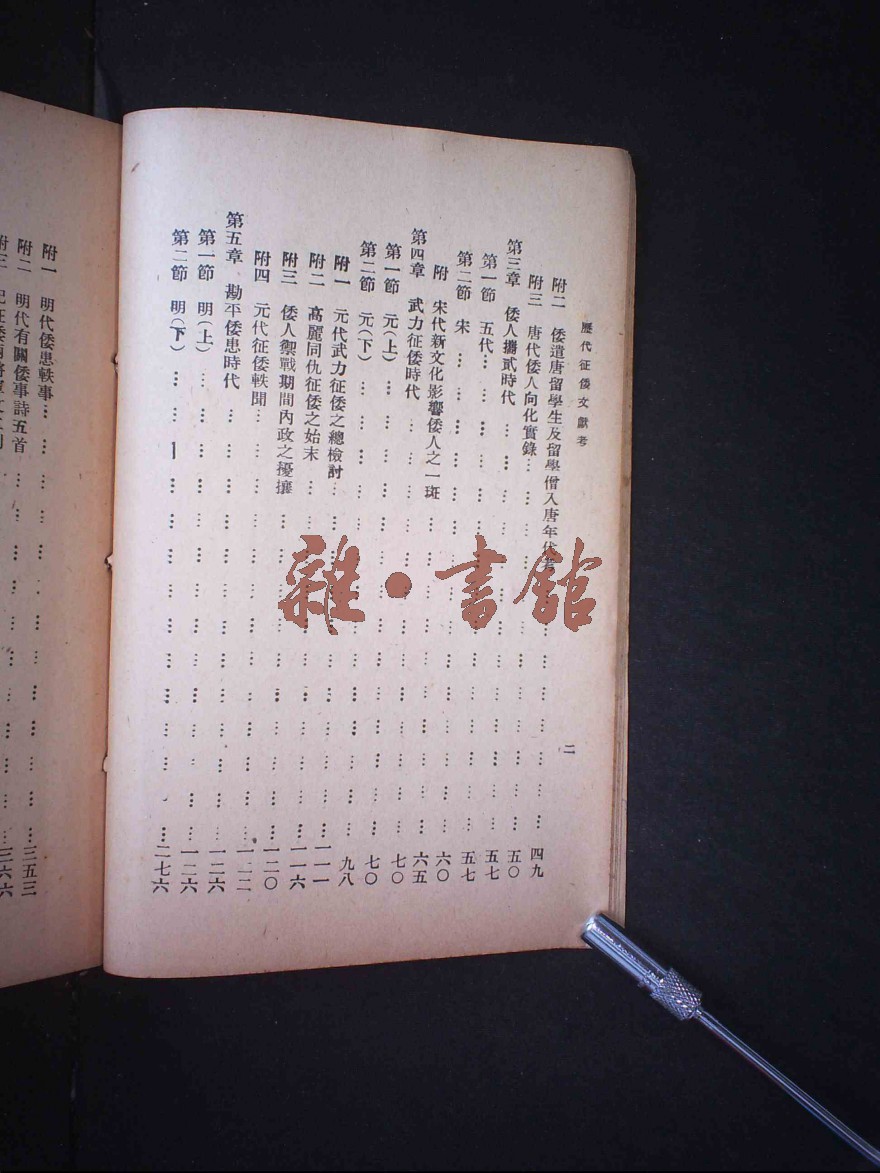 歷代征倭文獻考
二
附二 倭遣唐留學生及留學僧入唐年代考………四九
附三 唐代倭人向化實錄………五〇
第三章 倭人攜貳時代………五七
第一節 五代………五七
第二節 宋………六〇
附 宋代新文化影響倭人之一斑………六五
第四章 武力征倭時代………七〇
第一節 元(上)………七〇
第二節 元(下)………九八
附一 元代武力征倭之總檢討………一一一
附二 高麗同仇征倭之始末………一一六
附三 倭人禦戰期間內政之擾攘………一二〇
附四 元代征倭軼聞………一二二
第五章 勘平倭患時代………一二六
第一節 明(上)………一二六
第二節 明(下)………二七六
附一 明代倭患軼事………三五三
附二 明代有關倭事詩五首………三六六
附三
雜·書館